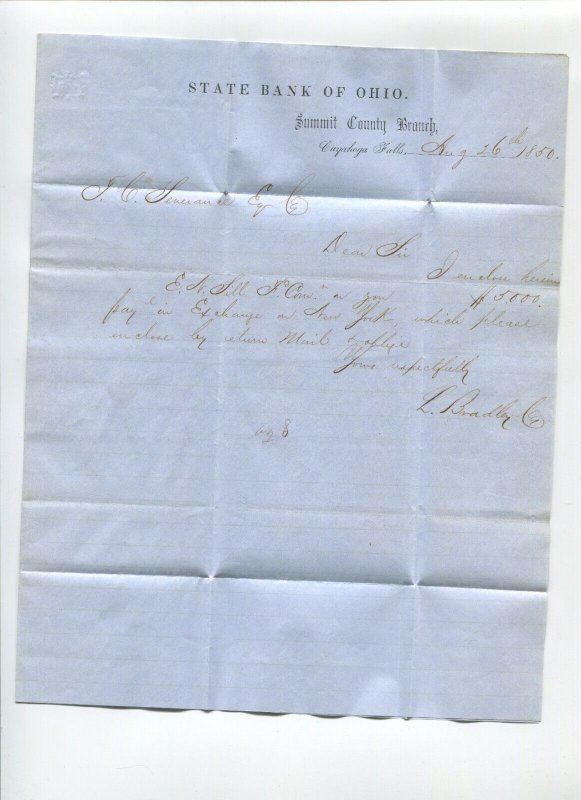 STATE BANK OF OHIO.
Summit County Branch,
Cuyahoga Falls, Aug 26th 1850.
T. C. Severance Esq C
Dear Sir
I enclose herein
E. N. Sill on you $5,000.
pay in Exchange on New York which please
enclose by return Mail & oblige
Yours respectfully
L. Bradley C